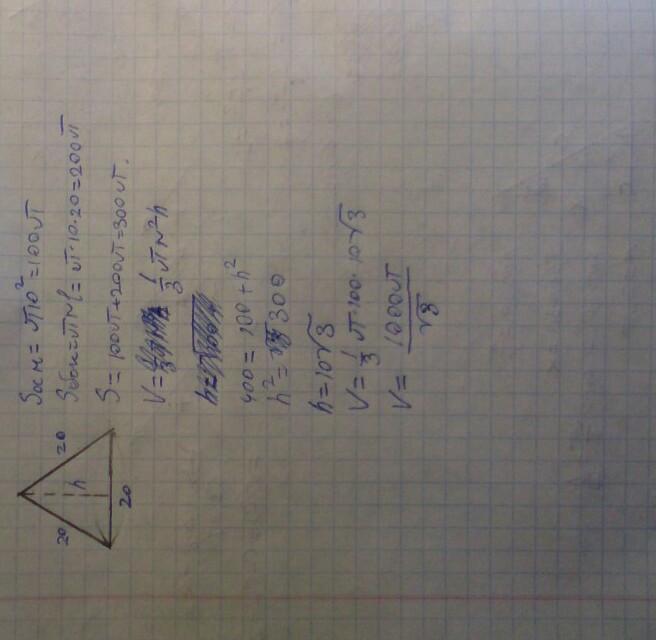 20
20
h
20
Sосн = π10² = 100π
Sбок = πrl = π·10·20 = 200π
S = 100π + 200π = 300π.
V = 1/3 πr²h
400 = 100 + h²
h² = 300
h = 10√3
V = 1/3 π·100·10√3
V = 1000π/√3